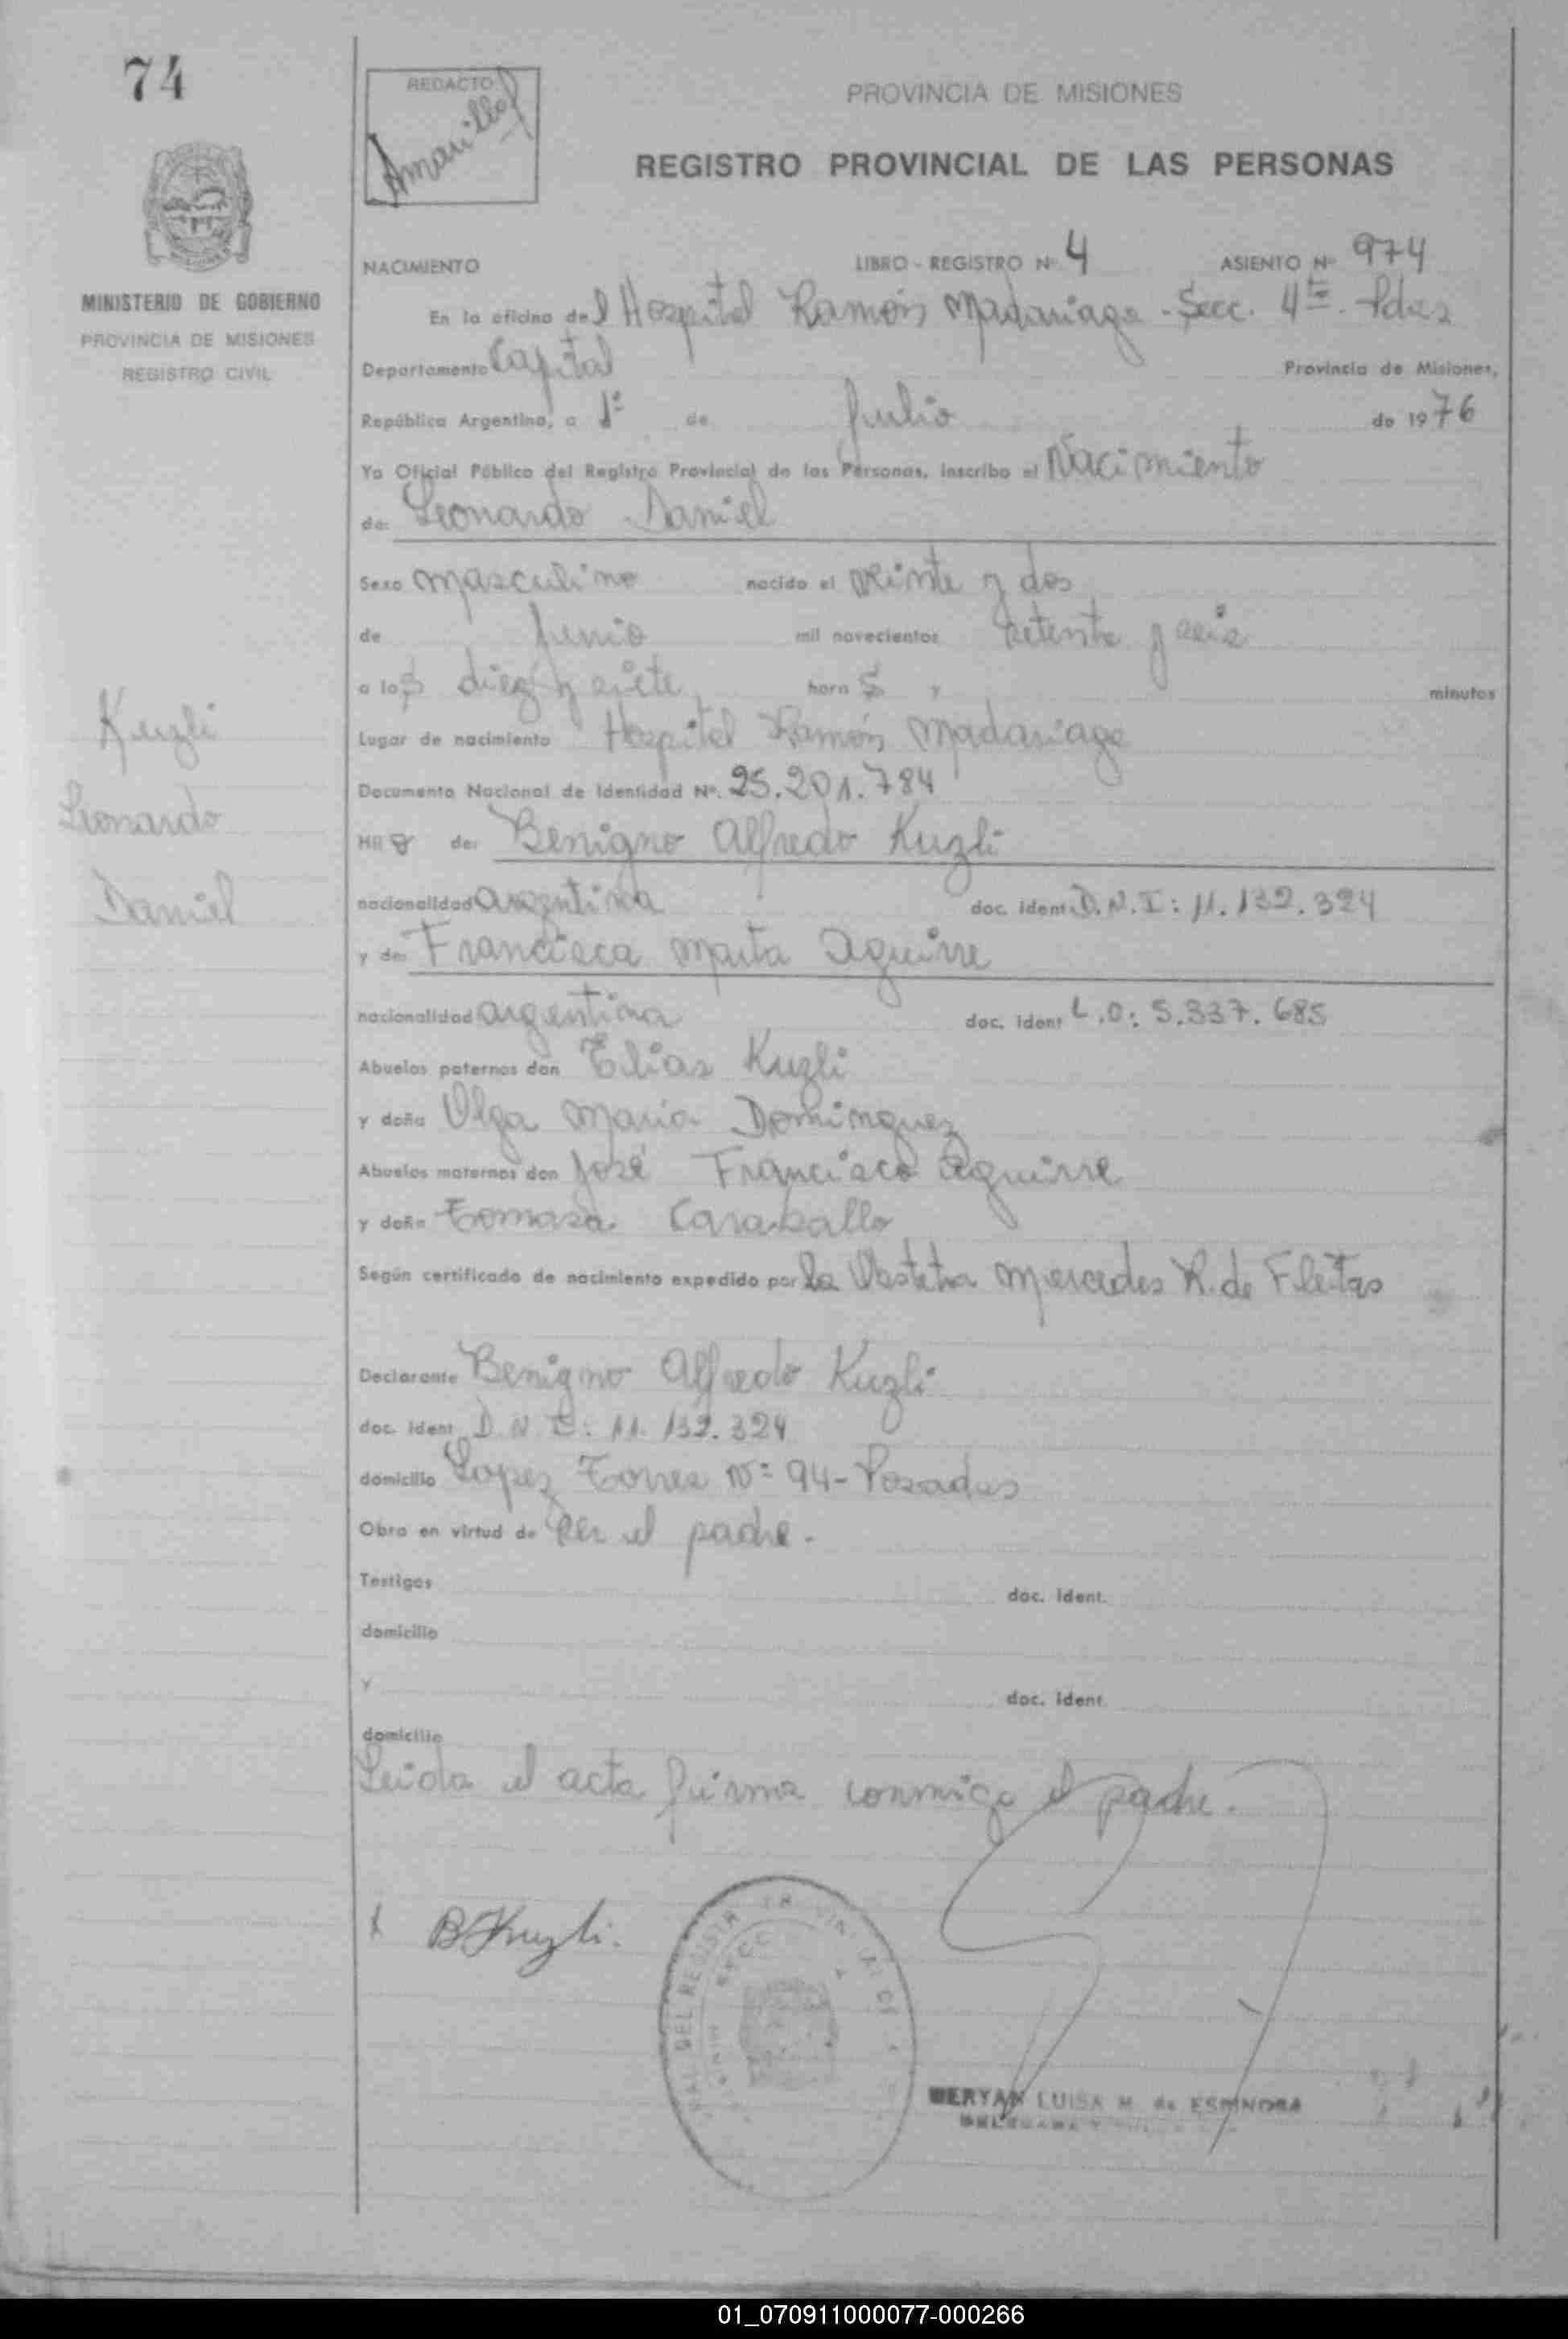 74
REDACTO
PROVINCIA DE MISIONES
REGISTRO PROVINCIAL DE LAS PERSONAS
MINISTERIO DE GOBIERNO
PROVINCIA DE MISIONES
REGISTRO CIVIL
NACIMIENTO LIBRO - REGISTRO Nº 4 ASIENTO Nº 974
En la oficina del Hospital Ramón Madariaga - Secc. 4ta - Pdas
Departamento Capital Provincia de Misiones,
República Argentina, a 1º de Julio de 1976
Yo Oficial Público del Registro Provincial de las Personas, inscribo el Nacimiento
de: Leonardo Daniel
Sexo masculino nacido el veinte y dos
de Junio mil novecientos setenta y seis
a las diez y siete horas y minutos
Lugar de nacimiento Hospital Ramón Madariaga
Documento Nacional de Identidad Nº. 25.201.784
Kuzli
Leonardo
Daniel
Hijo de: Benigno Alfredo Kuzli
nacionalidad argentina doc. ident. D.N.I: 11.132.324
y de: Francisca Marta Aguirre
nacionalidad argentina doc. ident. L.C: 5.337.685
Abuelos paternos don Elias Kuzli
y doña Olga María Dominguez
Abuelos maternos don José Francisco Aguirre
y doña Tomasa Caraballo
Según certificado de nacimiento expedido por la Obstetra Mercedes R. de Fleitas
Declarante Benigno Alfredo Kuzli
doc. ident. D.N.I: 11.132.324
domicilio Lopez Torres Nº 94 - Posadas
Obra en virtud de ser el padre.
Testigos doc. ident.
domicilio
y doc. ident.
domicilio
Leida el acta firma conmigo el padre.
B Kuzli.
LUISA M. de ESPINDOLA
01_070911000077-000266